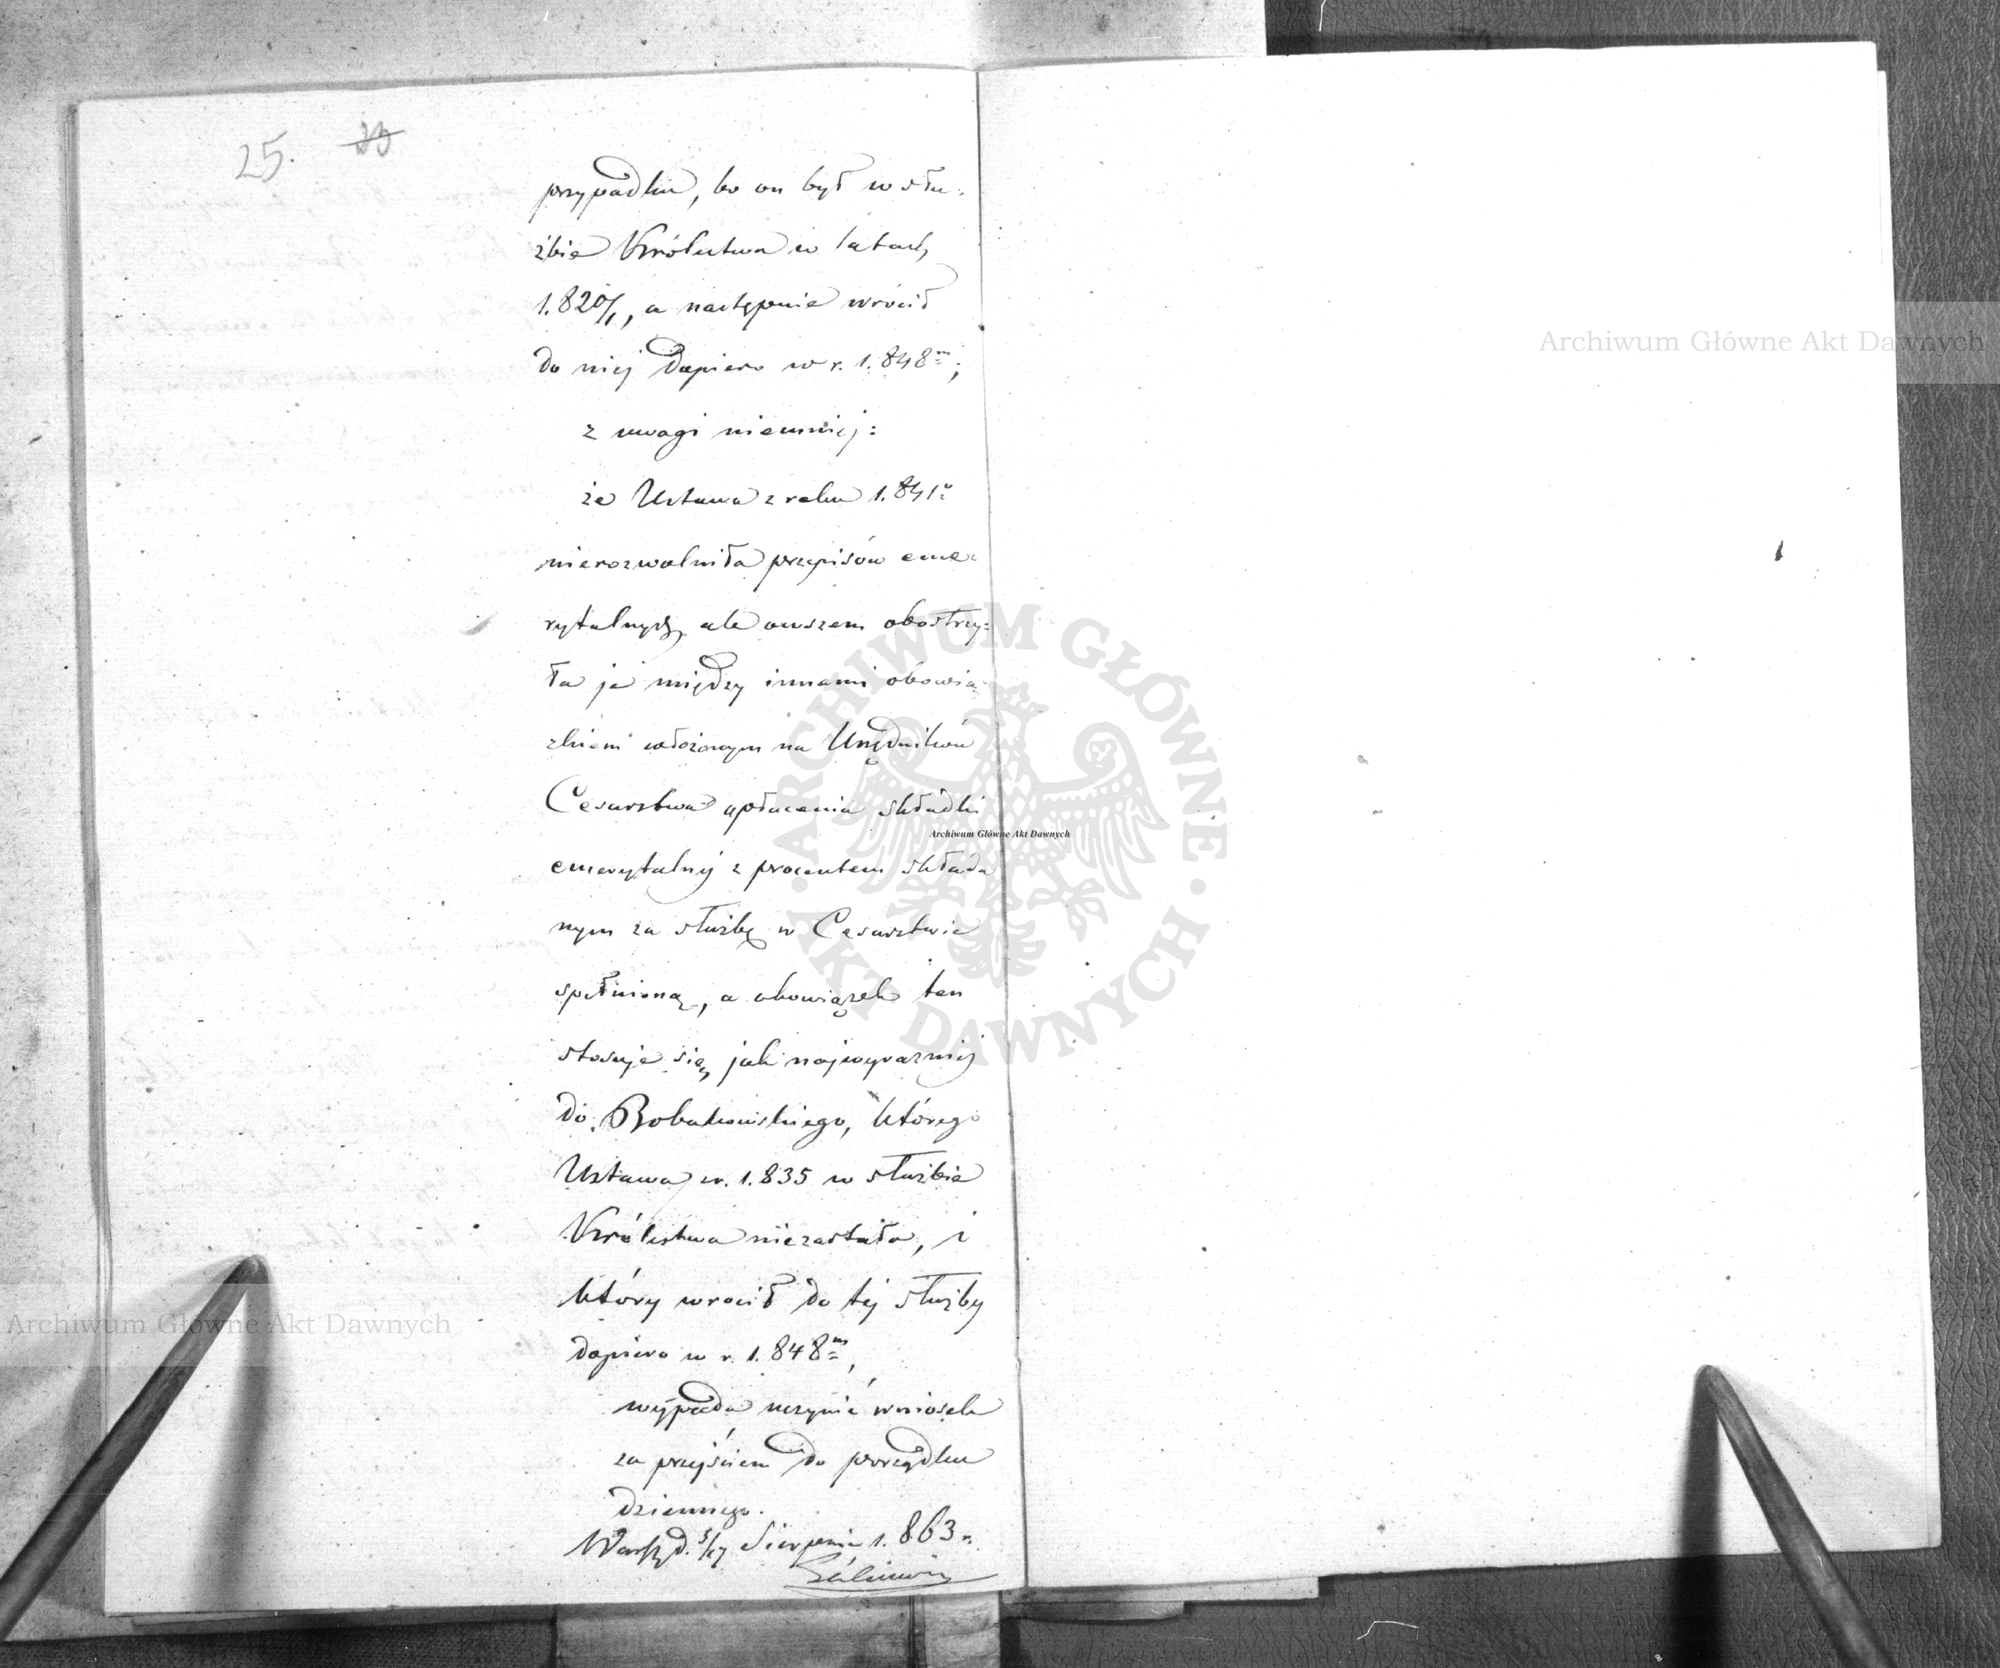 25. 23
przypadku, bo on był w słu-
żbie Królestwa w latach
1.820/1, a następnie wrócił
do niej dopiero w r. 1.848m;
z uwagi niemniej:
że Ustawa z roku 1.841r
nierozwolniła przepisów eme-
rytalnych, ale owszem obostrzy-
ła je między innemi obowią-
zkiem włożonym na Urzędników
Cesarstwa opłacenia składki
emerytalnej z procentem składa
nym za służbę w Cesarstwie
spełnioną, a obowiązek ten
stosuje się, jak najwyraźniej
do Bobakowskiego, którego
Ustawa z r. 1.835 w służbie
Królestwa niezastała, i
który wrócił do tej służby
dopiero w r. 1.848m,
wypada uczynić wniosek
za przejściem do porządku
dziennego.
Warsz. d. 5/17 Sierpnia 1.863 r.
Archiwum Główne Akt Dawnych
Archiwum Główne Akt Dawnych
ARCHIWUM GŁÓWNE
AKT DAWNYCH
Archiwum Główne Akt Dawnych